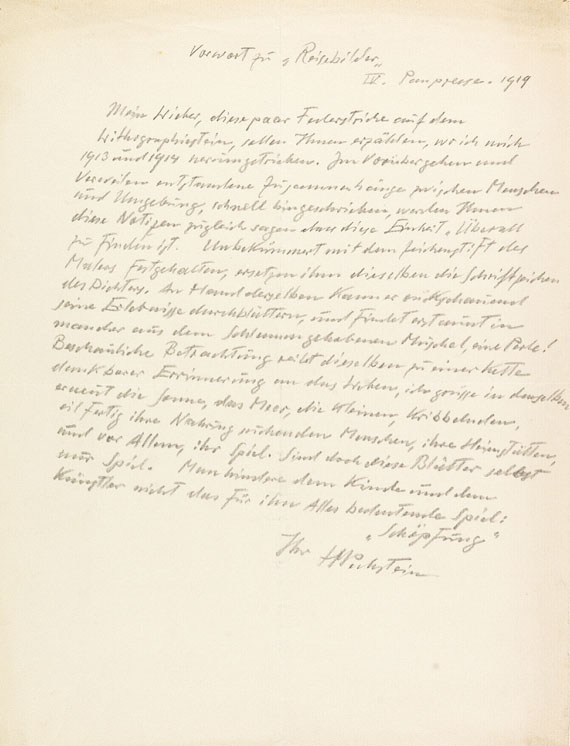 Vorwort zu „Reisebilder„
IV. Panpresse. 1919
Mein Lieber, diese paar Federstriche auf dem
Lithographiestein, sollen Ihnen erzählen, wo ich mich
1913 und 1914 herumgetrieben. Im Vorübergehen und
Verweilen entstandene Zusammenhänge zwischen Menschen
und Umgebung, schnell hingeschrieben, werden Ihnen
diese Notizen zugleich sagen dass diese Einheit, Überall
zu finden ist. Unbekümmert mit dem Zeichenstift des
Malers Festgehalten, ersetzen ihm dieselben die Schriftzeichen
des Dichters. An Hand derselben kann er rückschauend
seine Erlebnisse durchblättern, und findet erstaunt in
mancher aus dem Schlamm gehobenen Muschel, eine Perle!
Beschauliche Betrachtung reiht dieselben zu einer Kette
dankbarer Errinnerung an das Leben, ich grüsse in denselben
erneut die Sonne, das Meer, die kleinen, Kribbelnden,
eilfertig ihre Nahrung suchenden Menschen, ihre Heimstätten,
und vor Allem, ihr Spiel. Sind doch diese Blätter selbst
nur Spiel. Man hindere dem Kinde und dem
Künstler nicht das für ihn Alles bedeutende Spiel:
„Schöpfung"
Ihr HMPechstein